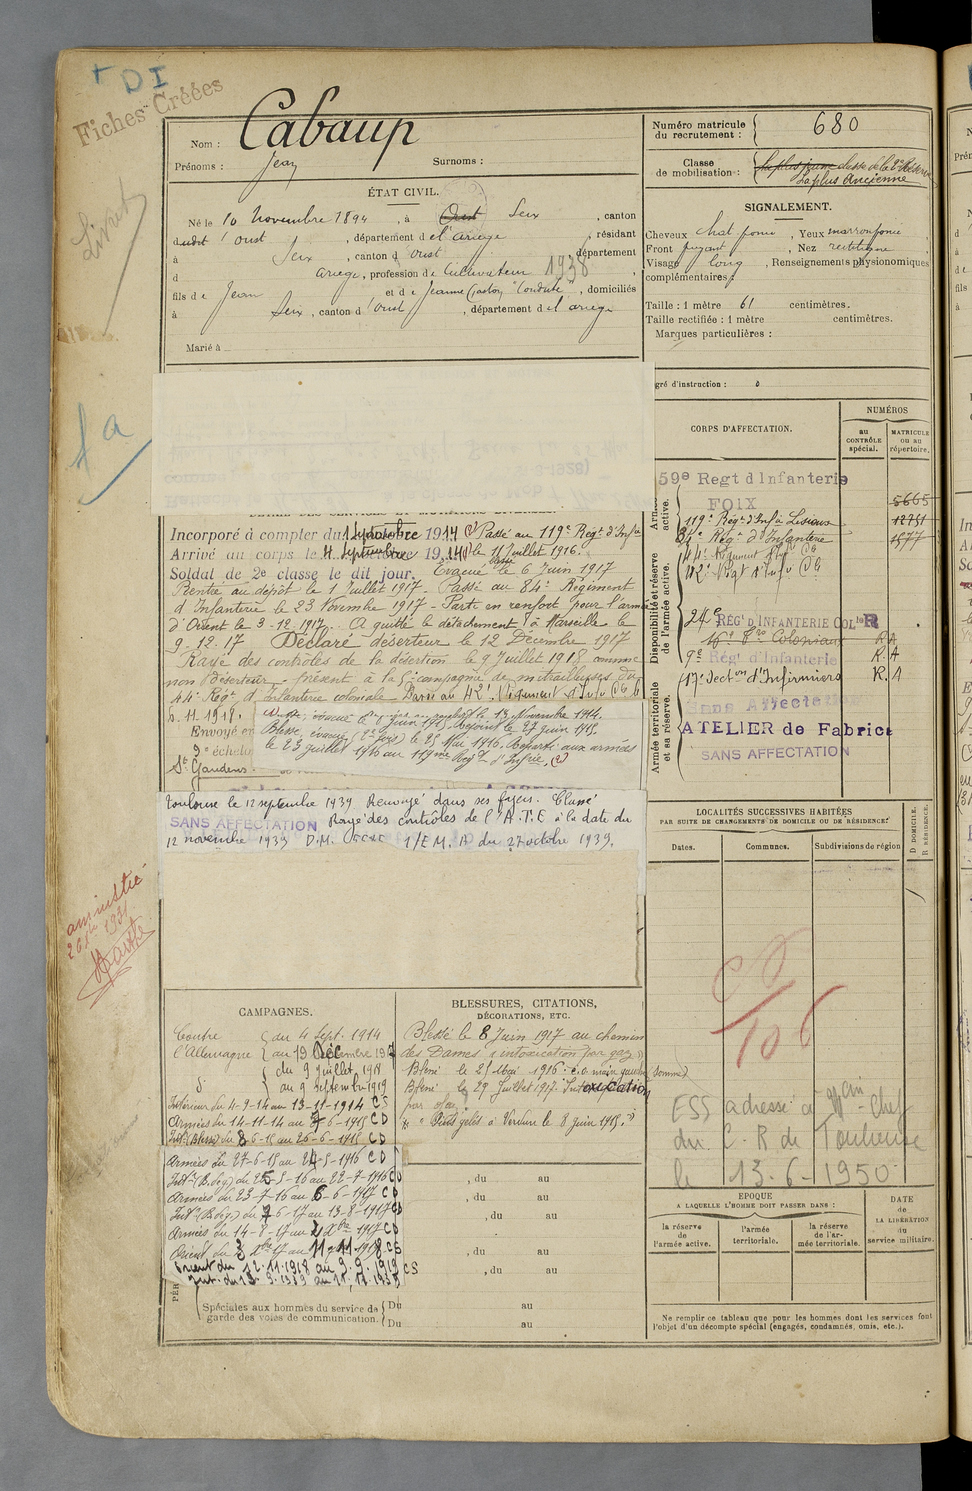 + DI
Fiches Créées
Livret
Nom : Cabaup
Prénoms : Jean Surnoms :
Numéro matricule du recrutement : 680
Classe de mobilisation : La plus jeune classe de la 2e Réserve
La plus Ancienne
ÉTAT CIVIL.
Né le 10 Novembre 1894, à Oust Seix, canton
dudit d'oust, département de l'ariège, résidant
à Seix, canton d'oust département
d ariège, profession de Cultivateur 1938
fils de Jean et de Jeanne Gaston "Coudute", domiciliés
à Seix, canton d'oust, département de l'ariège
Marié à
SIGNALEMENT.
Cheveux chat foncé, Yeux marron foncé
Front fuyant, Nez rectiligne
Visage long, Renseignements physionomiques
complémentaires :
Taille : 1 mètre 61 centimètres.
Taille rectifiée : 1 mètre centimètres.
Marques particulières :
gré d'instruction : 0
CORPS D'AFFECTATION.
NUMÉROS
au CONTRÔLE spécial.
MATRICULE ou au répertoire.
59e Regt d'Infanterie
FOIX 5665
119e Régt d'Infie Lisieux 12751
84e Régt d'Infanterie 1577
44e Régiment d'Infie Cle
42e Régt d'Infie Cle
24e RÉGt D'INFANTERIE COLle R
R.A
9e Régt d'Infanterie R.A
17e Section d'Infirmiers R.A
Sans Affectation
ATELIER de Fabrica
SANS AFFECTATION
Armée active.
Disponibilité et réserve de l'armée active.
Armée territoriale et sa réserve.
Incorporé à compter du 1 Septembre 1914 Passé au 119e Régt d'Infie
Arrivé au corps le 4 Septembre 1914 le 11 Juillet 1916.
Soldat de 2e classe le dit jour. Évacué le 6 Juin 1917
Rentré au dépôt le 1 Juillet 1917 - Passé au 84e Régiment
d'Infanterie le 23 Novembre 1917 - Parti en renfort pour l'armée
d'Orient le 3-12-1917. A quitté le détachement à Marseille le
9-12-17 Déclaré déserteur le 12 Décembre 1917
Rayé des contrôles de la désertion le 9 Juillet 1918 comme
non Déserteur - Présent à la 5e compagnie de mitrailleuses du
44e Régt d'Infanterie coloniale - Passé au 42e Régiment d'Infie Cle le
Envoyé en
2e échelon
St Gaudens
évacué
le 13 Novembre 1914.
Rejoint le 27 juin 1915.
Blessé, évacué (2e fois) le 25 Mai 1916. Reparti aux armées
le 23 juillet 1916 au 119me Régt d'Infrie. (2)
Toulouse le 12 septembre 1939 Renvoyé dans ses foyers. Classé
SANS AFFECTATION Rayé des contrôles de l'A.T.E à la date du
12 novembre 1939 D.M. 1/E M. A du 27 octobre 1939.
amnistié
LOCALITÉS SUCCESSIVES HABITÉES
PAR SUITE DE CHANGEMENTS DE DOMICILE OU DE RÉSIDENCE.
Dates. Communes. Subdivisions de région
D DOMICILE. R RÉSIDENCE.
106
ESS adressé au Méin-Chef
du C. R de Toulouse
le 13-6-1950
CAMPAGNES.
Contre l'Allemagne
du 4 Sept. 1914
au 19 Décembre 1917
du 9 Juillet 1918
au 9 septembre 1919
Intérieur du 4-9-14 au 13-11-1914 CS
Armées du 14-11-14 au 7-6-1915 CD
Intr (Blessé) du 8-6-15 au 26-6-1915 CD
Armées du 27-6-15 au 24-5-1916 CD
Intr (B. de g.) du 25-5-16 au 22-7-1916 CD
Armées du 23-7-16 au 6-6-1917 CD
Intr (B. de g.) du 7-6-17 au 13-8-1917 CD
Armées du 14-8-17 au 2 Dbre 1917 CD
Orient du 3 Dbre 17 au 11-11-1918 CS
Orient du 12.11.1918 au 9.9.1919 CS
Int. du 13.9.1939 au 11.11.1939
BLESSURES, CITATIONS,
DÉCORATIONS, ETC.
Blessé le 8 Juin 1917 au chemin
des Dames (intoxication par gaz)
Blessé le 25 Mai 1916. e.o main gauche (Somme)
Blessé le 29 Juillet 1917. Intoxication
par gaz
Pieds gelés à Verdun le 8 juin 1915.
, du au
, du au
, du au
, du au
, du au
Spéciales aux hommes du service de garde des voies de communication.
Du au
Du au
EPOQUE
A LAQUELLE L'HOMME DOIT PASSER DANS :
la réserve de l'armée active.
l'armée territoriale.
la réserve de l'armée territoriale.
DATE de LA LIBÉRATION du service militaire.
Ne remplir ce tableau que pour les hommes dont les services font
l'objet d'un décompte spécial (engagés, condamnés, omis, etc.).